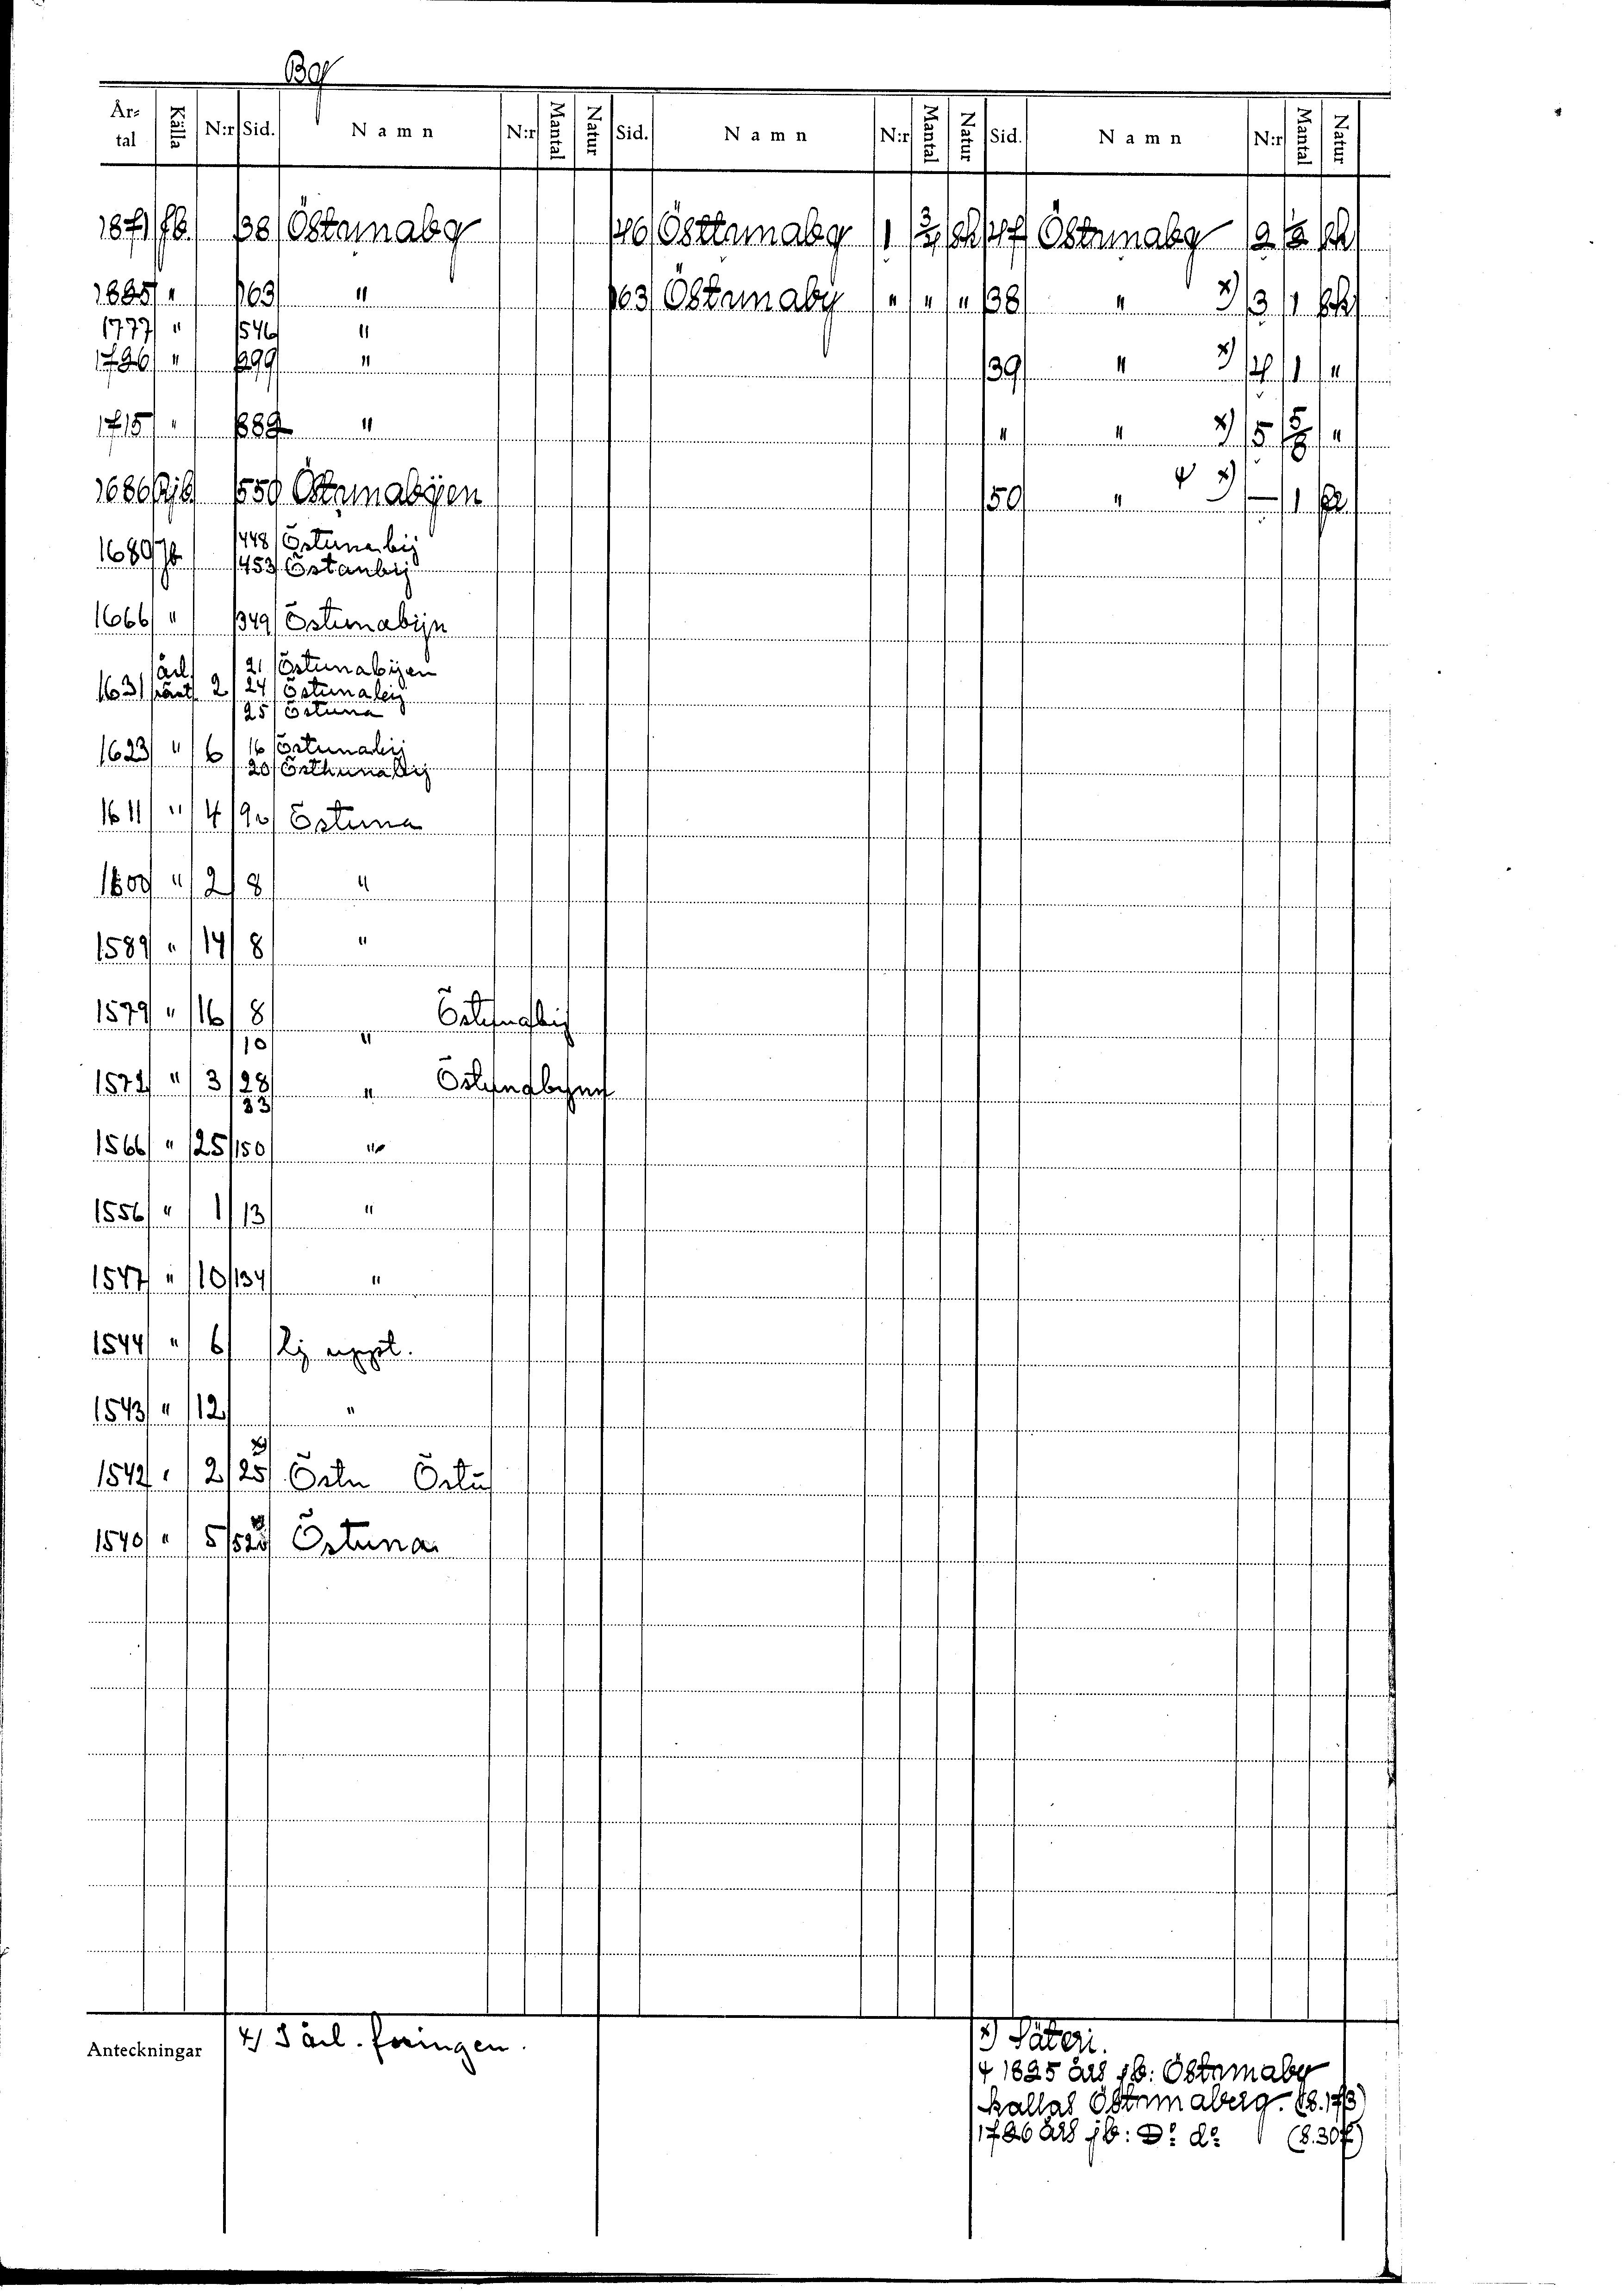 By
År-tal Källa N:r Sid. Namn N:r Mantal Natur Sid. Namn N:r Mantal Natur Sid. Namn N:r Mantal Natur
1871 jb. 38 Östunaby 46 Östtunaby 1 3/4 sk 47 Östunaby 2 1/2 sk
1825 " 163 " 163 Östunaby " " " 38 " x) 3 1 sk
1777 " 546 "
1726 " 299 " 39 " x) 4 1 "
1715 " 889 " " " x) 5 5/8 "
1686 Rjb 550 Östunabÿen 50 " + x) — 1 fr
1680 Jb 448 Östunabij
453 Östanbij
1666 " 349 Östunabijn
1631 ärl. räst 2 21 Östunabijen
24 Östunabij
25 Östuna
1623 " 6 16 Östunabij
20 Östhunabij
1611 " 4 9v Östuna
1600 " 2 8 "
1589 " 14 8 "
1579 " 16 8 Östunabij
10 "
1572 " 3 28 " Östunabynn
33
1566 " 25 150 "
1556 " 1 13 "
1547 " 10 134 "
1544 " 6 Ej uppt.
1543 " 12 "
1542 " 2 25 x) Östu Östū
1540 " 5 52v x) Östuna
Anteckningar
x) I ärl. foringen.
x) Säteri.
+ 1825 års jb: Östunaby
kallas Östunaberg. (S.173)
1726 års jb: D:o d:o (S.307)